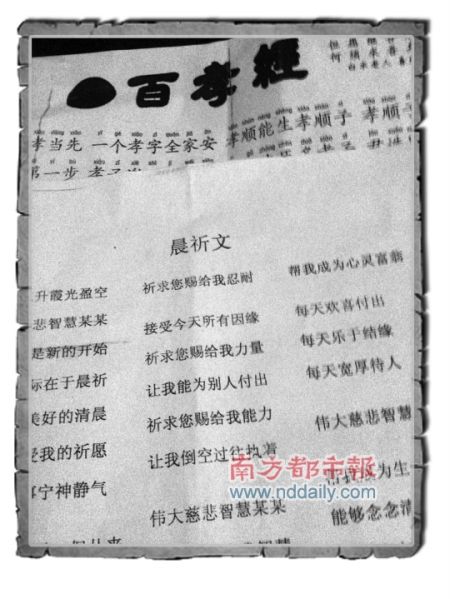 百孝經
孝当先 一个孝字全家安 孝顺能生孝顺子 孝顺
第一步
晨祈文
升霞光盈空
悲智慧某某
是新的开始
际在于晨祈
美好的清晨
受我的祈愿
宁神静气
祈求您赐给我忍耐
接受今天所有因缘
祈求您赐给我力量
让我能为别人付出
祈求您赐给我能力
让我倒空过往执着
伟大慈悲智慧某某
帮我成为心灵富翁
每天欢喜付出
每天乐于结缘
每天宽厚待人
伟大慈悲智慧
帮我成为生
能够念念清
南方都市報
www.nddaily.com